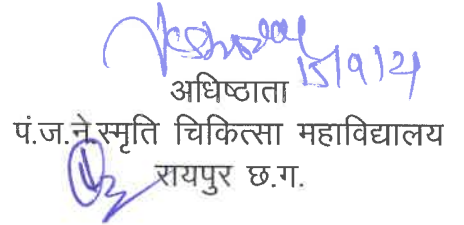 15/9/21
अधिष्ठाता
पं.ज.ने.स्मृति चिकित्सा महाविद्यालय
रायपुर छ.ग.